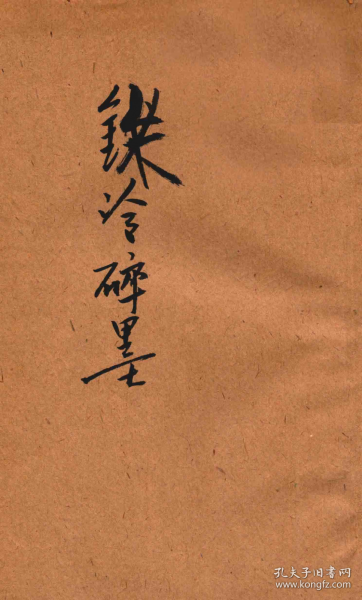 鐵冷碎墨
孔夫子旧书网
www.kongfz.com